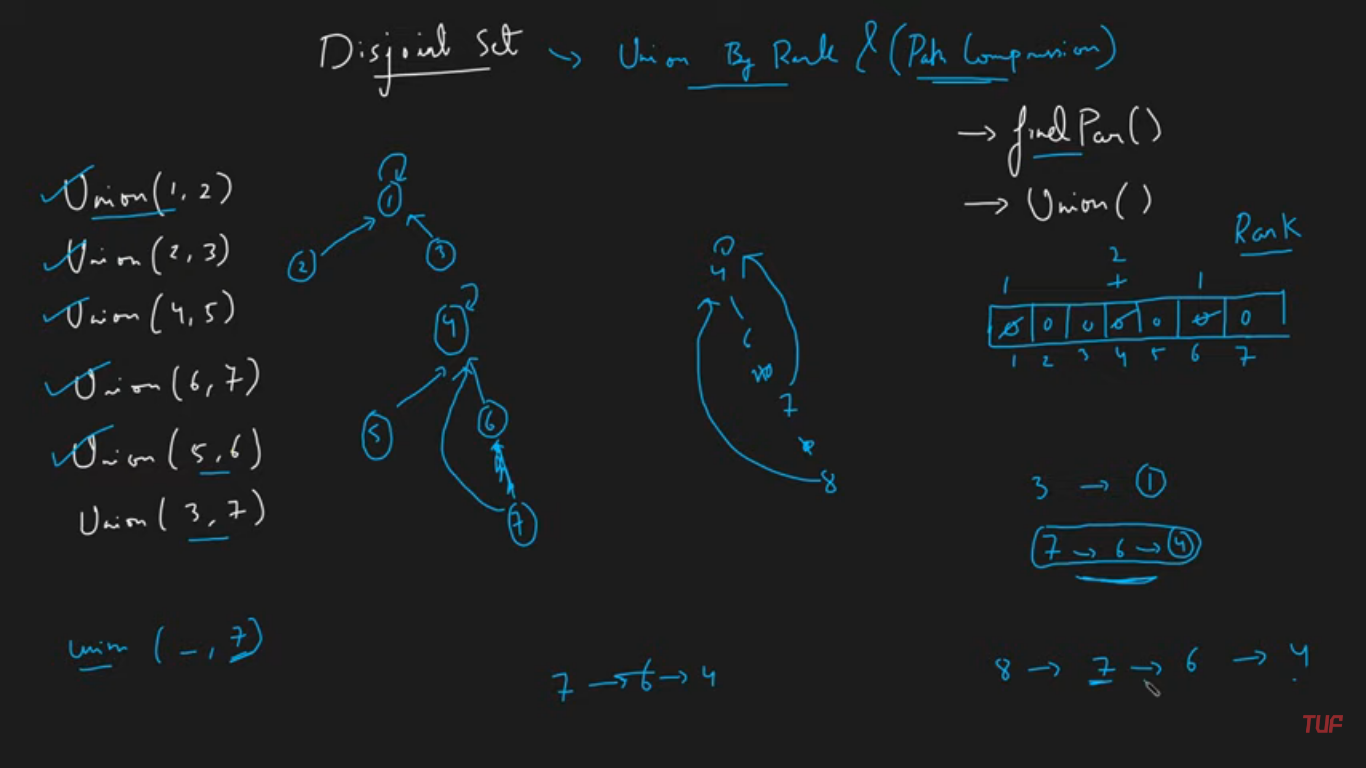 Disjoint Set → Union By Rank & (Path Compression)
→ findPar()
→ Union()
Union(1, 2)
Union(2, 3)
Union(4, 5)
Union(6, 7)
Union(5, 6)
Union(3, 7)
1
2 3
4
5 6
7
4
6
7
8
Rank
1 2 1
+
0 0 0 0 0 0 0
1 2 3 4 5 6 7
3 → 1
7 → 6 → 4
union (_, 7)
7 → 6 → 4
8 → 7 → 6 → 4
TUF